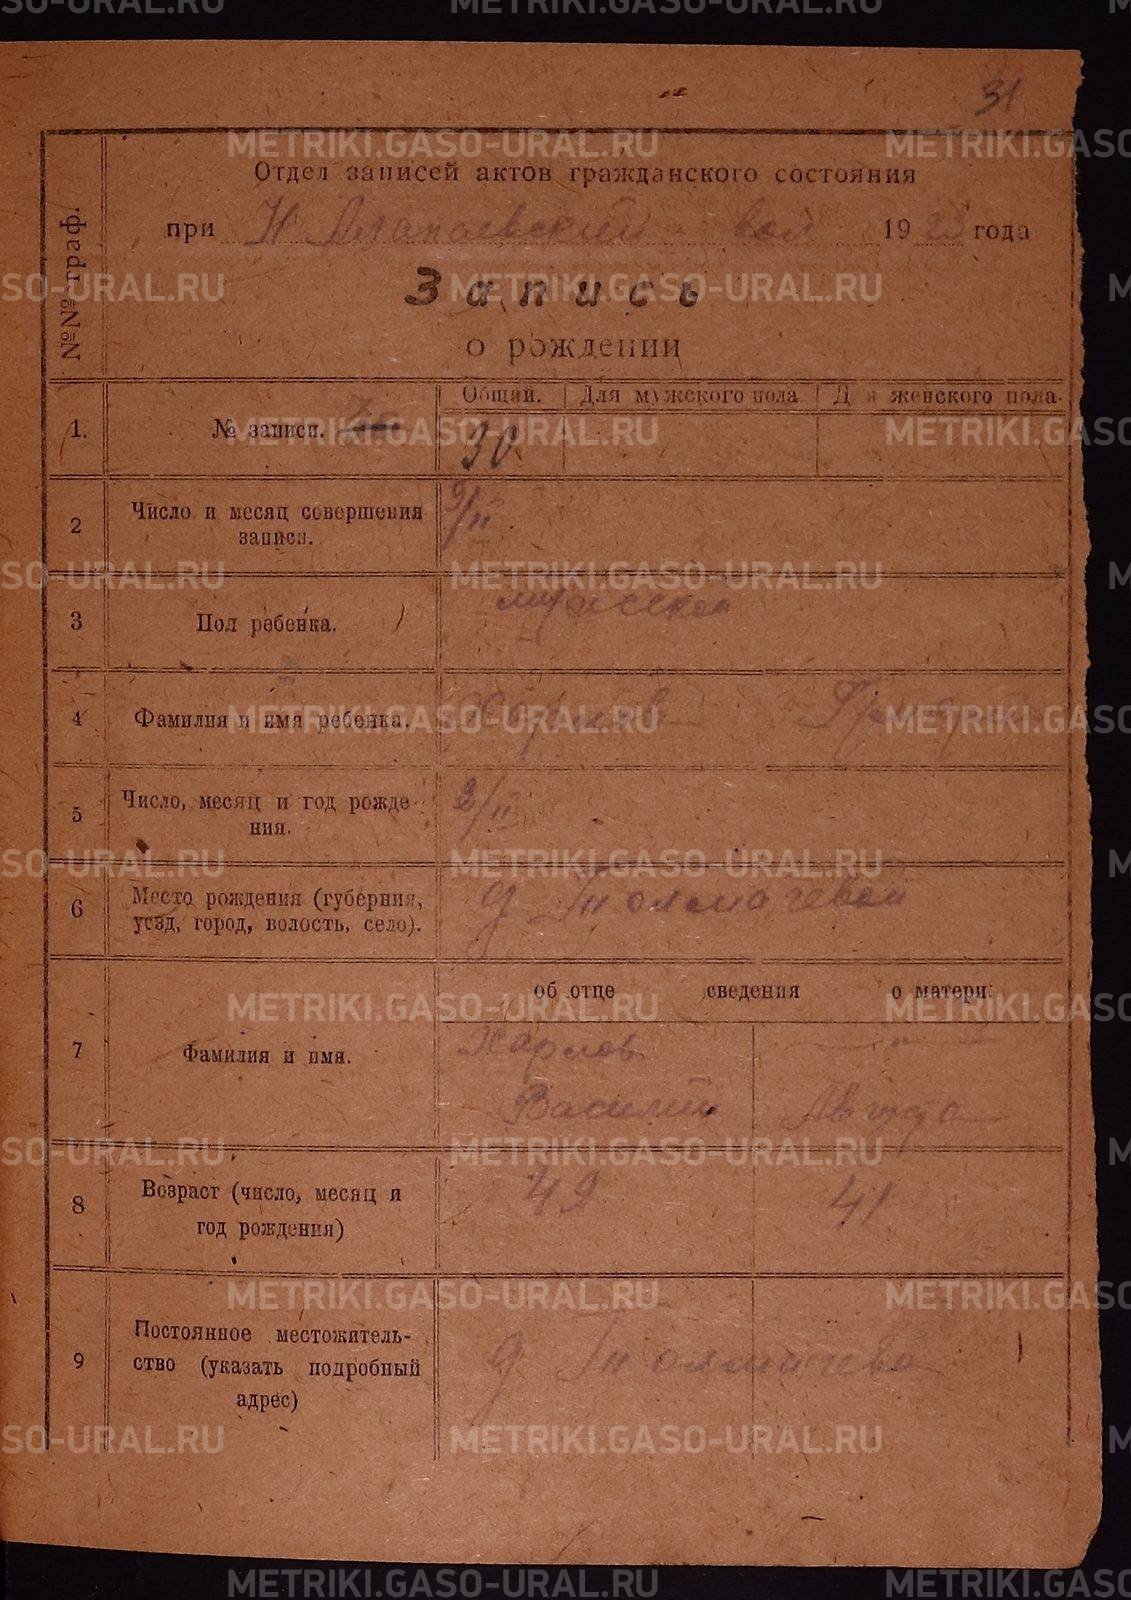 METRIKI.GASO-URAL.RU
31
Отдел записей актов гражданского состояния
при Н Алапаевский вол 1923 года
№№ граф.
Запись
о рождении
Общий. Для мужского пола Для женского пола.
1. № записи. 30
2 Число и месяц совершения записи. 9/II
3 Пол ребенка. мужской
4 Фамилия и имя ребенка. Харлов
5 Число, месяц и год рождения. /II
6 Место рождения (губерния, уезд, город, волость, село). д Толмачевой
об отце сведения о матери:
7 Фамилия и имя. Харлов — " —
Василий Августа
8 Возраст (число, месяц и год рождения) 42 41
9 Постоянное местожительство (указать подробный адрес) д Толмачева